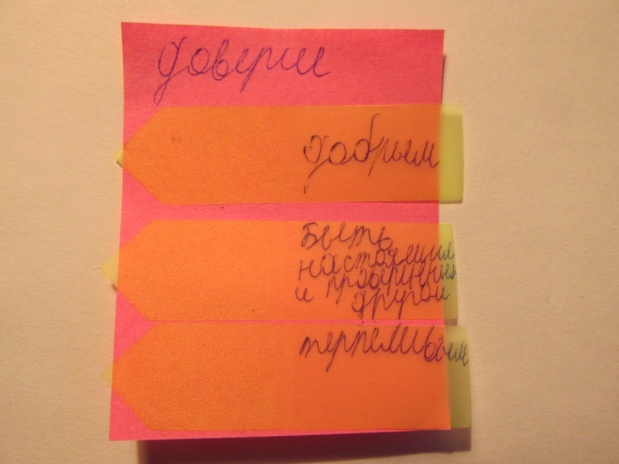 доверие
добрым
Быть
настоящим
и проверенным
другом
терпеливым